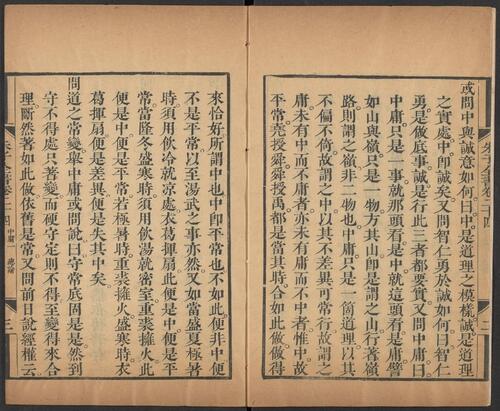 或問中與誠意如何曰中是道理之模樣誠是道理
之實處中即誠矣又問智仁勇於誠如何曰智仁
勇是做底事誠是行此三者都要實又問中庸曰
中庸只是一事就那頭看是中就這頭看是庸譬
如山與嶺只是一物方其山即是謂之山行著嶺
路則謂之嶺非二物也中庸只是一箇道理以其
不偏不倚故謂之中以其不差異可常行故謂之
庸未有中而不庸者亦未有庸而不中者惟中故
平常堯授舜舜授禹都是當其時合如此做做得
來恰好所謂中也中即平常也不如此便非中便
不是平常以至湯武之事亦然又如當盛夏極暑
時須用飲冷就凉處衣葛揮扇此便是中便是平
常當隆冬盛寒時須用飲湯就密室重裘擁火此
便是中便是平常若極暑時重裘擁火盛寒時衣
葛揮扇便是差異便是失其中矣
問道之常變舉中庸或問說曰守常底固是是然到
守不得處只著變而硬守定則不得至變得來合
理斷然著如此做依舊是常又問前日說經權云
中庸
三